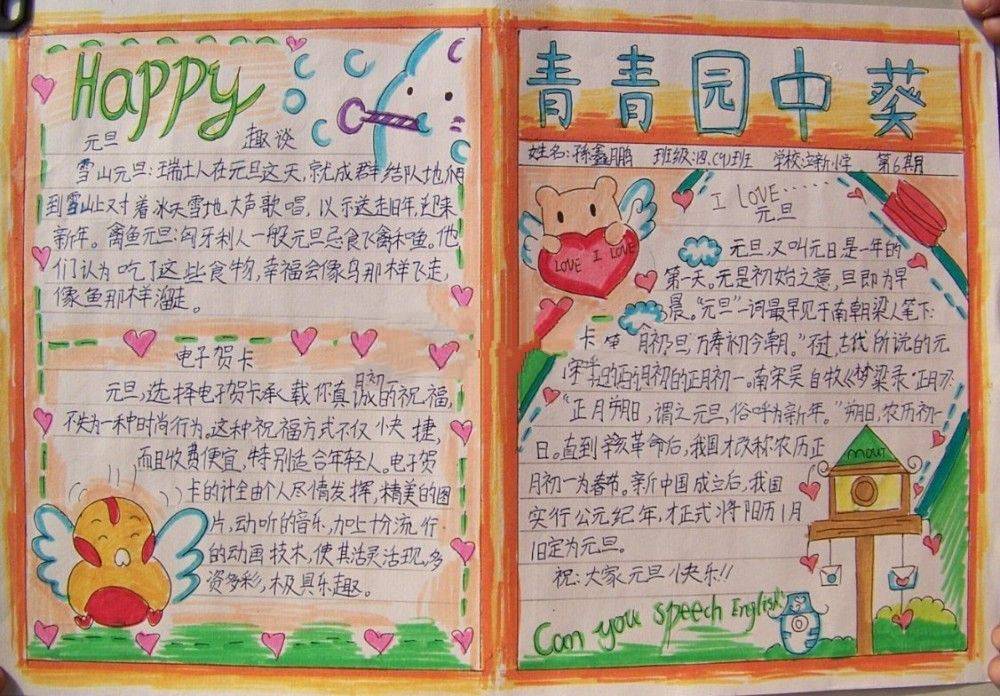 Happy
元旦 趣谈
雪山元旦:瑞士人在元旦这天,就成群结队地
到雪山上对着冰天雪地大声歌唱,以示送走旧年,迎来
新年。禽鱼元旦:匈牙利人一般元旦忌食飞禽和鱼。他
们认为吃了这些食物,幸福会像鸟那样飞走,
像鱼那样溜走。
电子贺卡
元旦,选择电子贺卡承载你真诚的祝福,
不失为一种时尚行为。这种祝福方式不仅快捷,
而且收费便宜,特别适合年轻人。电子贺
卡的计全由个人尽情发挥,精美的图
片,动听的音乐,加上十分流行
的动画技术,使其活灵活现,多
姿多彩,极具乐趣。
青青园中葵
姓名:孫鑫鹏 班级:四.(4)班 学校:立新小学 第6期
I LOVE......
元旦
LOVE I LOVE
元旦,又叫元日是一年的
第一天。元是初始之意,旦即为早
晨。“元旦”一词最早见于南朝梁人笔下:
月初旦 万寿初今朝。”不过,古代所说的元
的正月初一。南宋吴自牧《梦梁录·正月》:
“正月朔日,谓之元旦,俗呼为新年。”朔日,农历初一
日。直到辛亥革命后,我国才改称农历正
月初一为春节。新中国成立后,我国
实行公元纪年,才正式将阳历1月
1日定为元旦。
祝:大家元旦快乐!!
Can you speech English